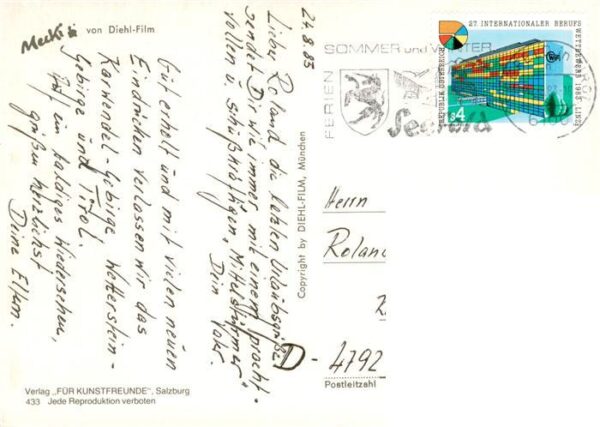 Mecki von Diehl-Film
24.8.85
Liebe Roland die letzten Urlaubsgrüße
sendet Dir wie immer mit einem pracht-
vollen u. schußkräftigen „Mittelstürmer"
Dein Vater.
Gut erholt und mit vielen neuen
Eindrücken verlassen wir das
Karwendel-Gebirge Wetterstein-
Gebirge und Tirol.
Auf ein baldiges Wiedersehen,
grüßen herzlichst
Deine Eltern.
Verlag „FÜR KUNSTFREUNDE", Salzburg
433 Jede Reproduktion verboten
Copyright by DIEHL-FILM, München
FERIEN
SOMMER und WINTER
Seefeld
27 INTERNATIONALER BERUFS
WETTBEWERB 1983 LINZ
REPUBLIK ÖSTERREICH
S4
Herrn
Rolan
D - 4792
Postleitzahl